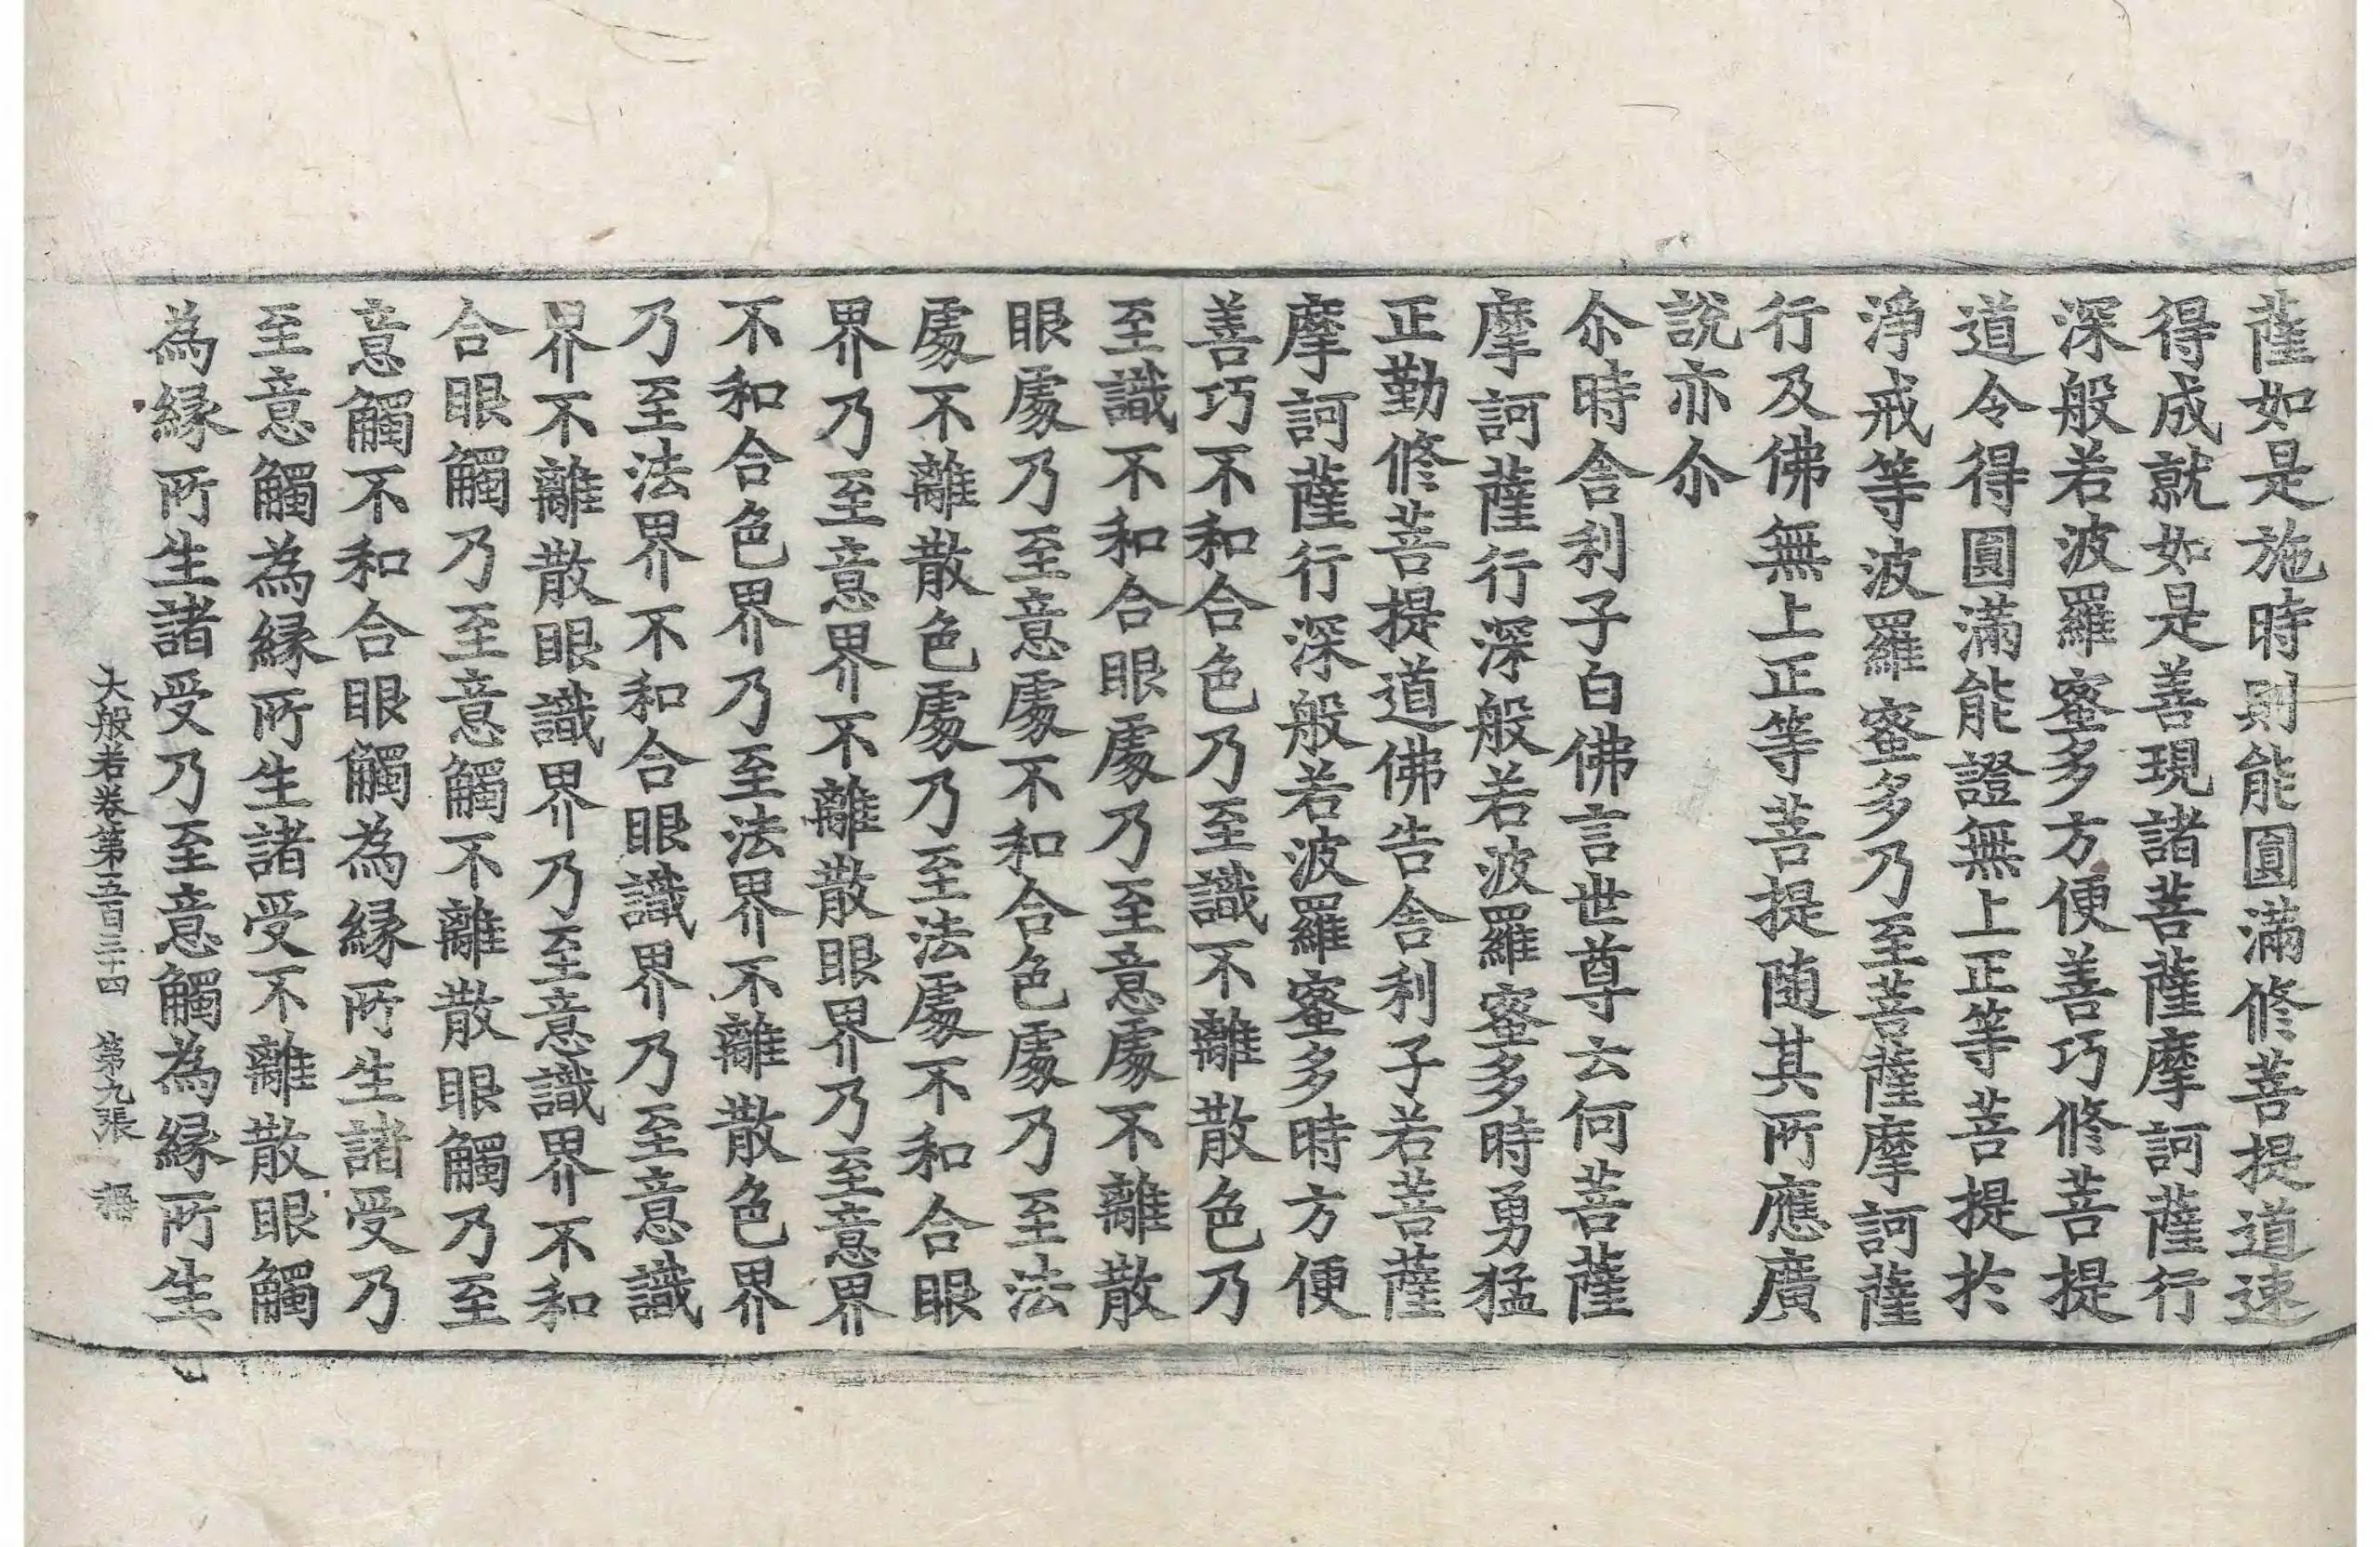 薩如是施時則能圓滿修菩提道速
得成就如是善現諸菩薩摩訶薩行
深般若波羅蜜多方便善巧修菩提
道令得圓滿能證無上正等菩提於
淨戒等波羅蜜多乃至菩薩摩訶薩
行及佛無上正等菩提随其所應廣
說亦尒
尒時舍利子白佛言世尊云何菩薩
摩訶薩行深般若波羅蜜多時勇猛
正勤修菩提道佛告舍利子若菩薩
摩訶薩行深般若波羅蜜多時方便
善巧不和合色乃至識不離散色乃
至識不和合眼處乃至意處不離散
眼處乃至意處不和合色處乃至法
處不離散色處乃至法處不和合眼
界乃至意界不離散眼界乃至意界
不和合色界乃至法界不離散色界
乃至法界不和合眼識界乃至意識
界不離散眼識界乃至意識界不和
合眼觸乃至意觸不離散眼觸乃至
意觸不和合眼觸為緣所生諸受乃
至意觸為緣所生諸受不離散眼觸
為緣所生諸受乃至意觸為緣所生
大般若卷第五百三十四 第九張